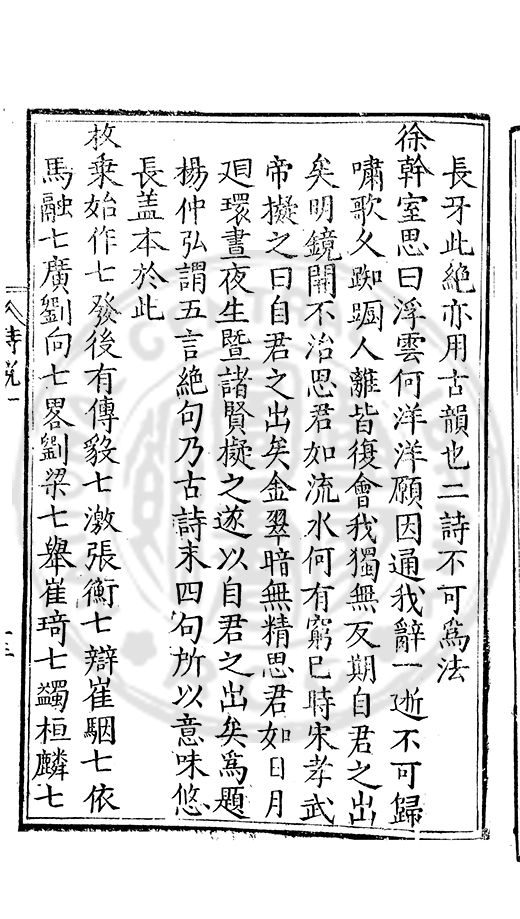 長牙此絶亦用古韻也二詩不可爲法
徐幹室思曰浮雲何洋洋願因通我辭一逝不可歸
嘯歌久踟躕人離皆復會我獨無反期自君之出
矣明鏡開不治思君如流水何有窮已時宋孝武
帝擬之曰自君之出矣金翠暗無精思君如日月
廻環晝夜生曁諸賢擬之遂以自君之出矣爲題
楊仲弘謂五言絶句乃古詩末四句所以意味悠
長盖本於此
枚乗始作七發後有傅毅七激張衡七辯崔駰七依
馬融七廣劉向七畧劉梁七舉崔琦七蠲桓麟七
詩説一